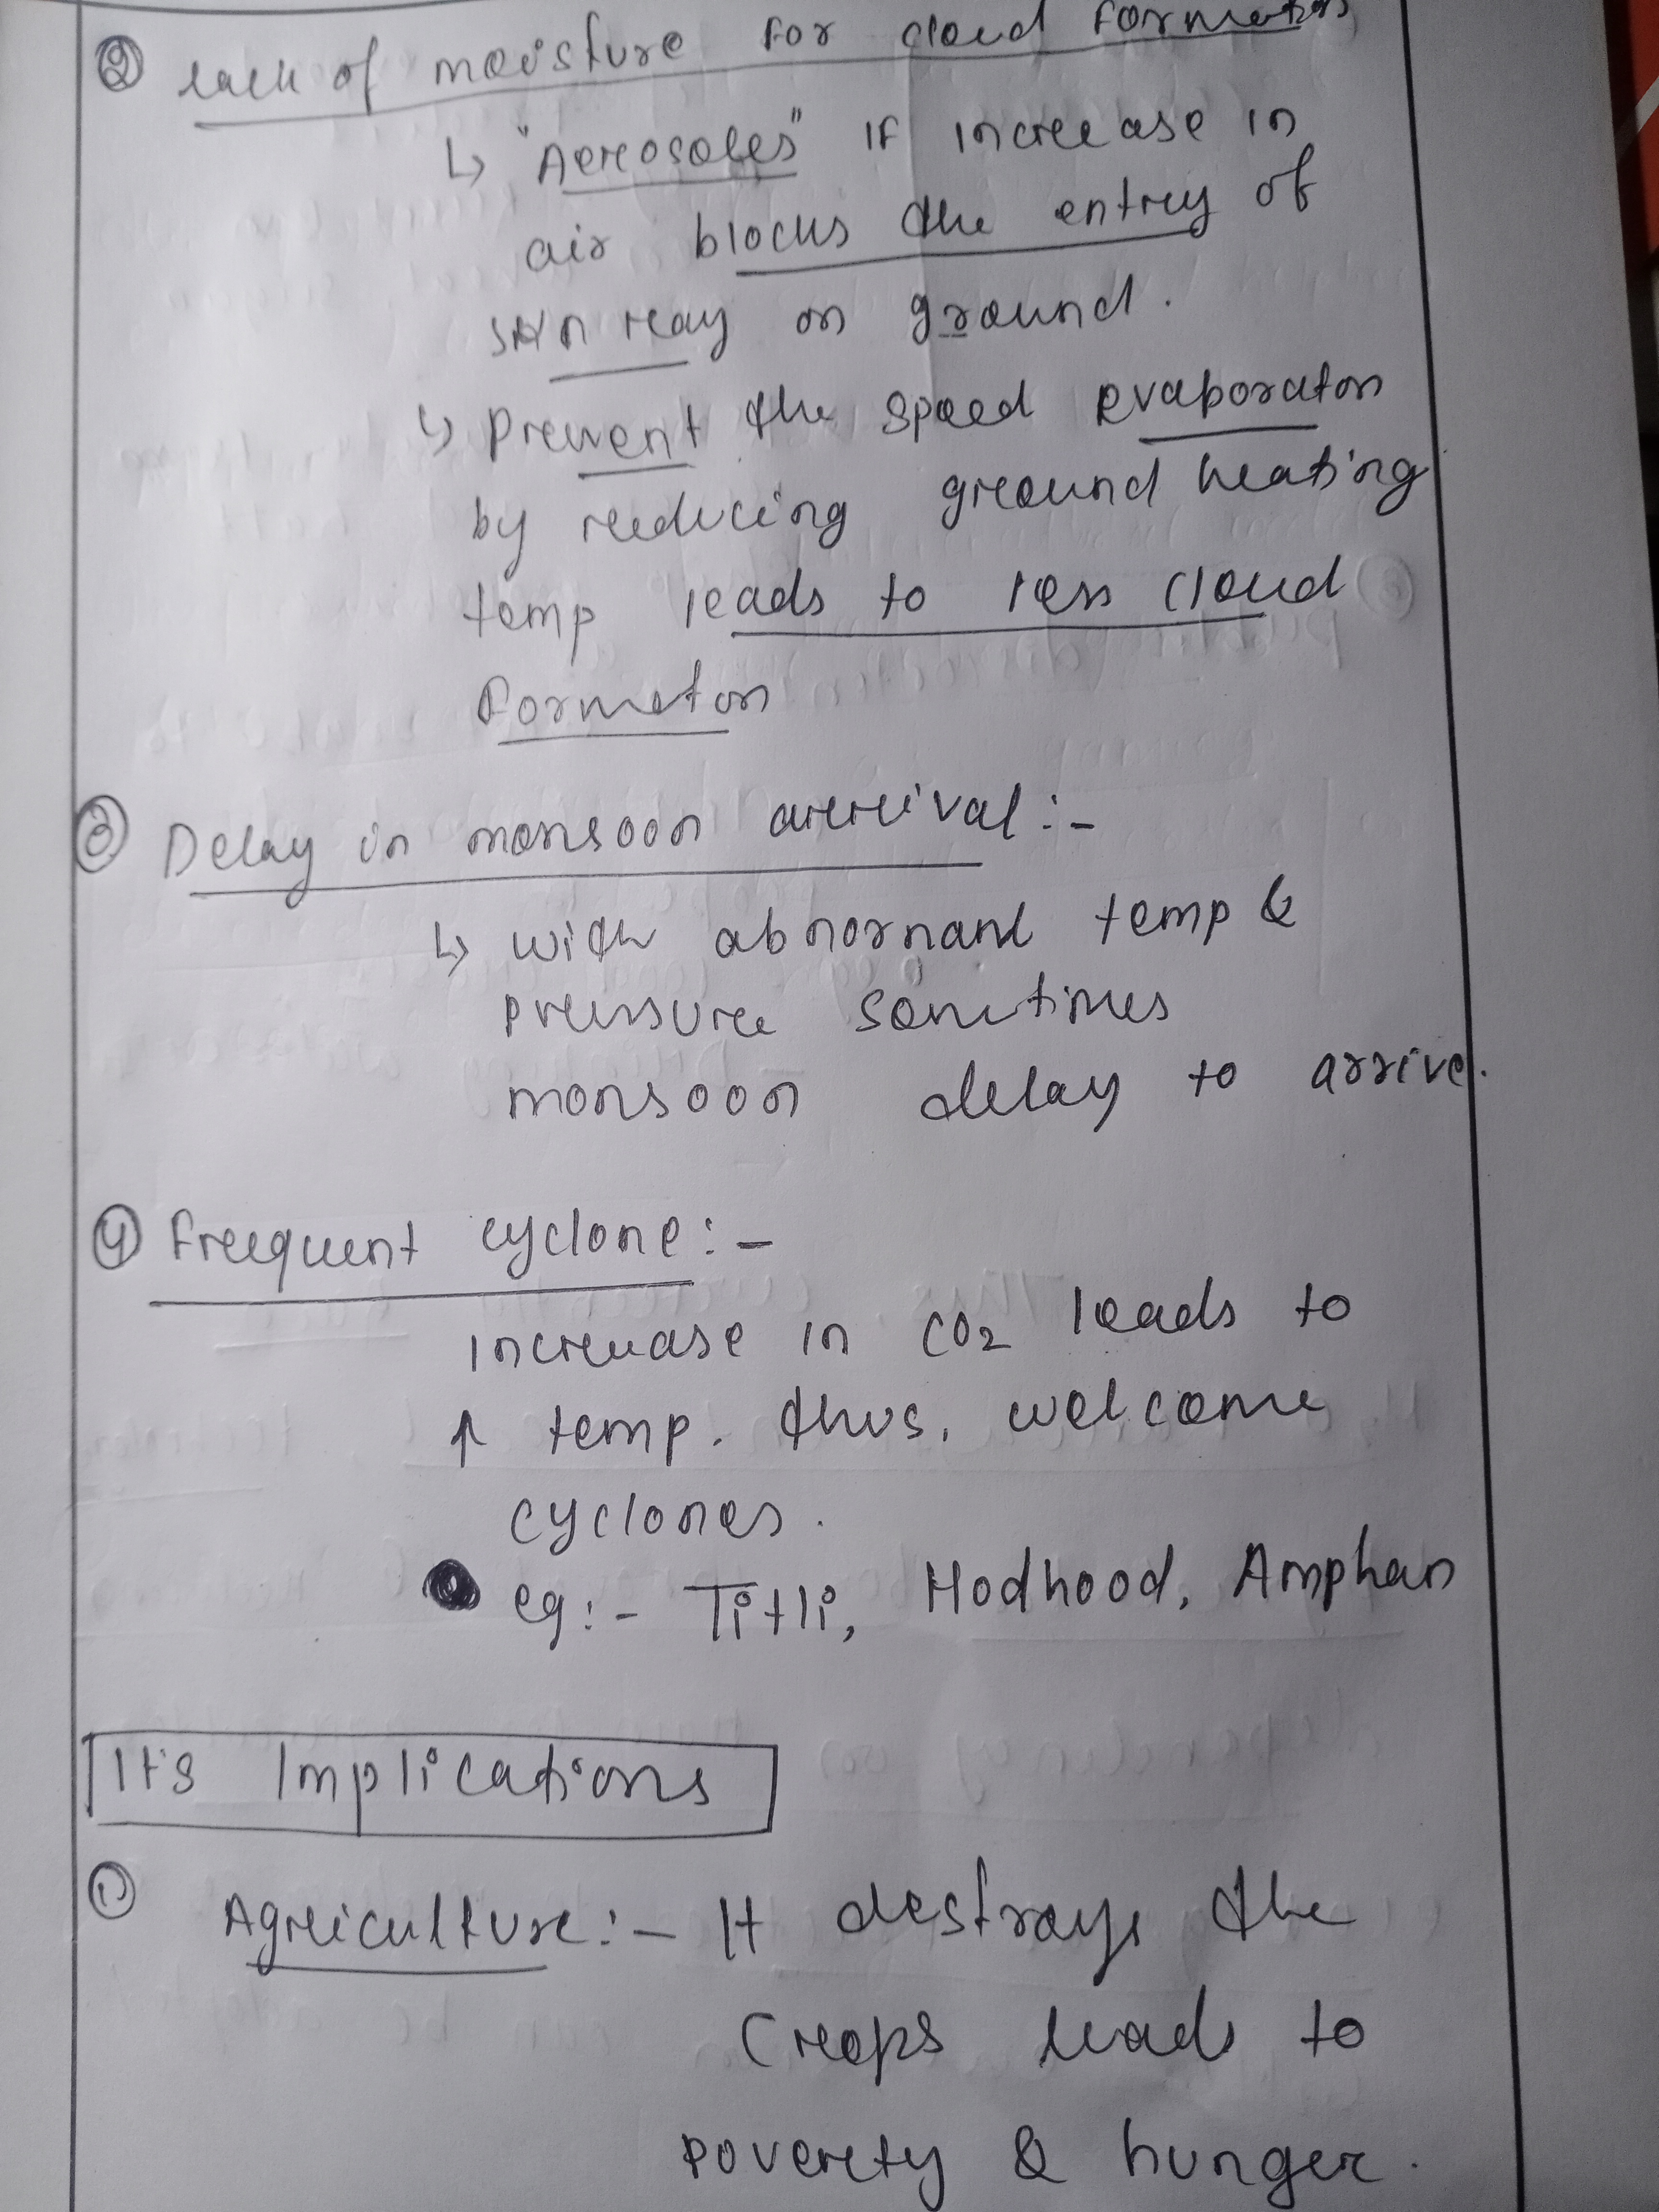 ② lack of moisture for cloud formation
↳ "Aerosoles" if increase in
air blocks the entry of
sun ray on ground.
↳ Prevent the speed evaporaton
by reducing ground heating
temp leads to less cloud
formaton
③ Delay in monsoon arrival :-
↳ with abnormanl temp &
pressure sometimes
monsoon delay to arrive.
④ Frequent cyclone :-
Increase in CO2 leads to
↑ temp. thus, welcome
cyclones.
eg :- Titli, Hodhood, Amphan
It's Implications
① Agriculture :- It destroys the
Crops leads to
poverty & hunger.